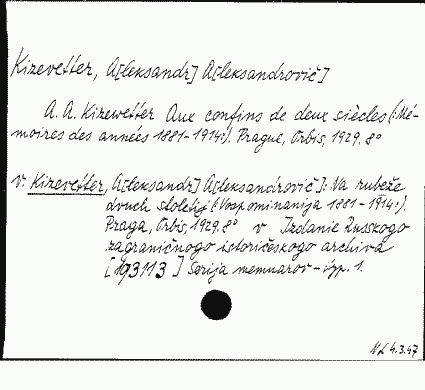 Kizevetter, A[leksandr] A[leksandrovič]
A. A. Kizewetter Aux confins de deux siècles (:Mé-
moires des années 1881-1914:). Prague, Orbis, 1929. 8°
v. Kizevetter, A[leksandr] A[leksandrovič]: Na rubeže
dvuch stoletij (:Vospominanija 1881-1914:).
Praga, Orbis, 1929. 8° v Izdanie Russkogo
zagraničnogo istoričeskogo archiva
[193113] Serija memuarov - vyp. 1.
4.3.47